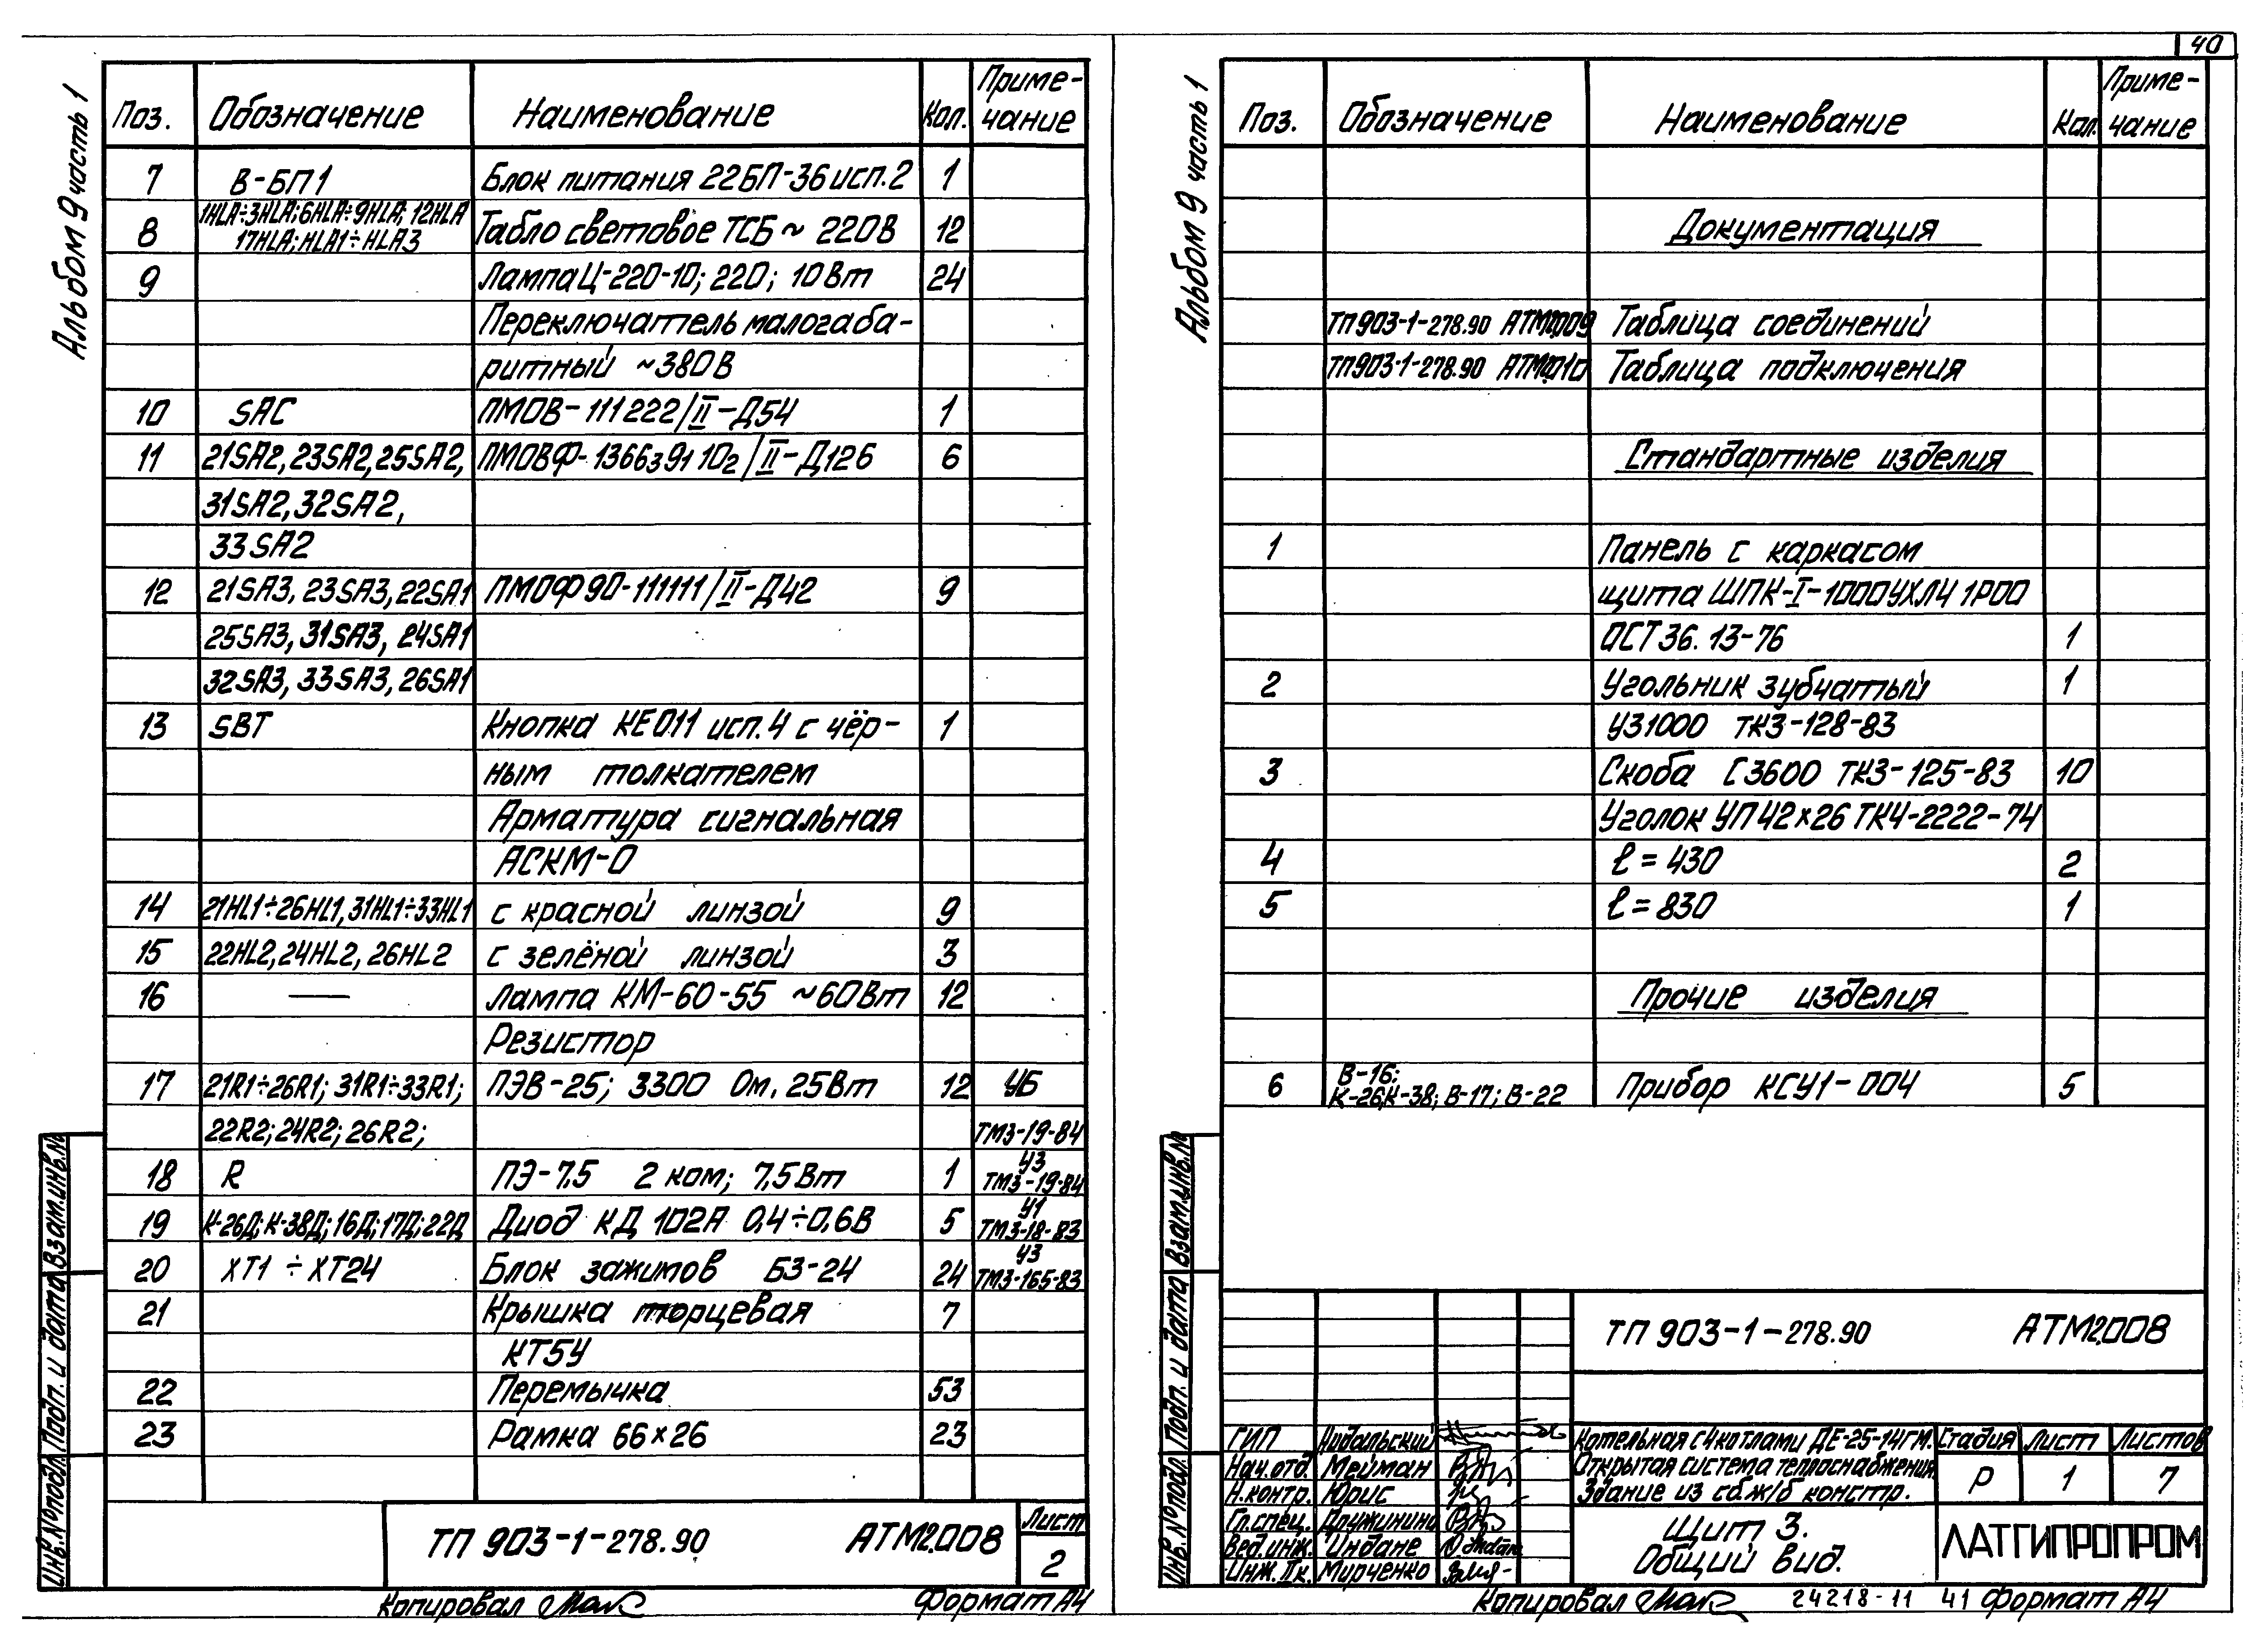 40
Альбом 9 часть 1
Поз. Обозначение Наименование Кол. Приме-
чание
7 В-БП1 Блок питания 22БП-36 исп.2 1
1HLA÷3HLA;6HLA÷9HLA; 12HLA
8 17HLA;HLA1÷HLA3 Табло световое ТСБ ~ 220В 12
9 Лампа Ц-220-10; 220; 10Вт 24
Переключатель малогаба-
ритный ~380В
10 SAC ПМОВ-111222/II-Д54 1
11 21SA2, 23SA2, 25SA2, ПМОВФ-1366391102/II-Д126 6
31SA2, 32SA2,
33SA2
12 21SA3, 23SA3, 22SA1 ПМОФ90-111111/II-Д42 9
25SA3, 31SA3, 24SA1
32SA3, 33SA3, 26SA1
13 SBT Кнопка КЕ011 исп.4 с чёр- 1
ным толкателем
Арматура сигнальная
АСКМ-0
14 21HL1÷26HL1, 31HL1÷33HL1 с красной линзой 9
15 22HL2, 24HL2, 26HL2 с зелёной линзой 3
16 — Лампа КМ-60-55 ~60Вт 12
Резистор
17 21R1÷26R1; 31R1÷33R1; ПЭВ-25; 3300 Ом. 25Вт 12 УБ
22R2; 24R2; 26R2; ТМ3-19-84
18 R ПЭ-7,5 2 ком; 7,5Вт 1 У3
ТМ3-19-84
19 К-26Д; К-38Д; 16Д; 17Д; 22Д Диод КД 102А 0,4÷0,6В 5 У1
ТМ3-18-83
20 ХТ1 ÷ ХТ24 Блок зажимов БЗ-24 24 У3
ТМ3-165-83
21 Крышка торцевая 7
КТ5У
22 Перемычка 53
23 Рамка 66×26 23
Взам.инв.№
Подп. и дата
Инв.№подл.
ТП 903-1-278.90 АТМ2.008 Лист
2
Копировал Формат А4
Альбом 9 часть 1
Поз. Обозначение Наименование Кол. Приме-
чание
Документация
ТП903-1-278.90 АТМ2.009 Таблица соединений
ТП903-1-278.90 АТМ2.010 Таблица подключения
Стандартные изделия
1 Панель с каркасом
щита ШПК-I-1000УХЛ4 1Р00
ОСТ 36. 13-76 1
2 Угольник зубчатый 1
УЗ1000 ТК3-128-83
3 Скоба С3600 ТК3-125-83 10
Уголок УП 42×26 ТК4-2222-74
4 ℓ = 430 2
5 ℓ = 830 1
Прочие изделия
В-16;
6 К-26К-38; В-17; В-22 Прибор КСУ1-004 5
Взам.инв.№
Подп. и дата
Инв.№подл.
ТП 903-1-278.90 АТМ2.008
ГИП Нидальский Котельная с 4 котлами ДЕ-25-14ГМ. Стадия Лист Листов
Нач.отд. Мейман Открытая система теплоснабжения.
Н.контр. Юрис Здание из сб.ж/б констр. Р 1 7
Гл.спец. Дружинина Щит 3.
Вед.инж. Индане Общий вид. ЛАТГИПРОПРОМ
Инж. IIк. Мурченко
Копировал 24218-11 41 Формат А4